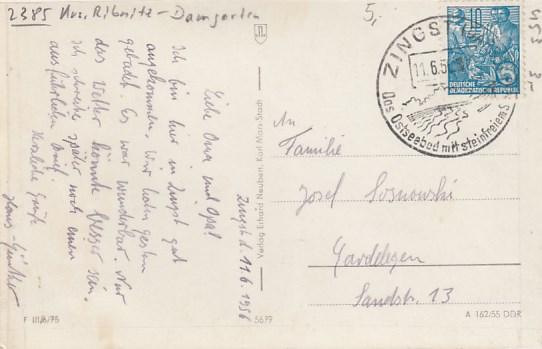 2385 Krs. Ribnitz-Damgarten
5,-
Zingst d. 11.6.1956
Liebe Oma und Opa!
Ich bin hier in Zingst gut
angekommen. Wir haben gestern
gebadet. Es war wunderbar. Nur
das Wetter könnte besser sein.
Ich schreibe später noch einen
ausführlichen Brief.
Herzliche Grüße
Hans-Günther
Verlag Erhard Neubert, Karl-Marx-Stadt
ZINGST
11.6.5
Das Ostseebad mit steinfreiem S
DEUTSCHE
DEMOKRATISCHE REPUBLIK
An
Familie
Josef Sosnowski
Gardelegen
Sandstr. 13
F III/8/75
5679
A 162/55 DDR